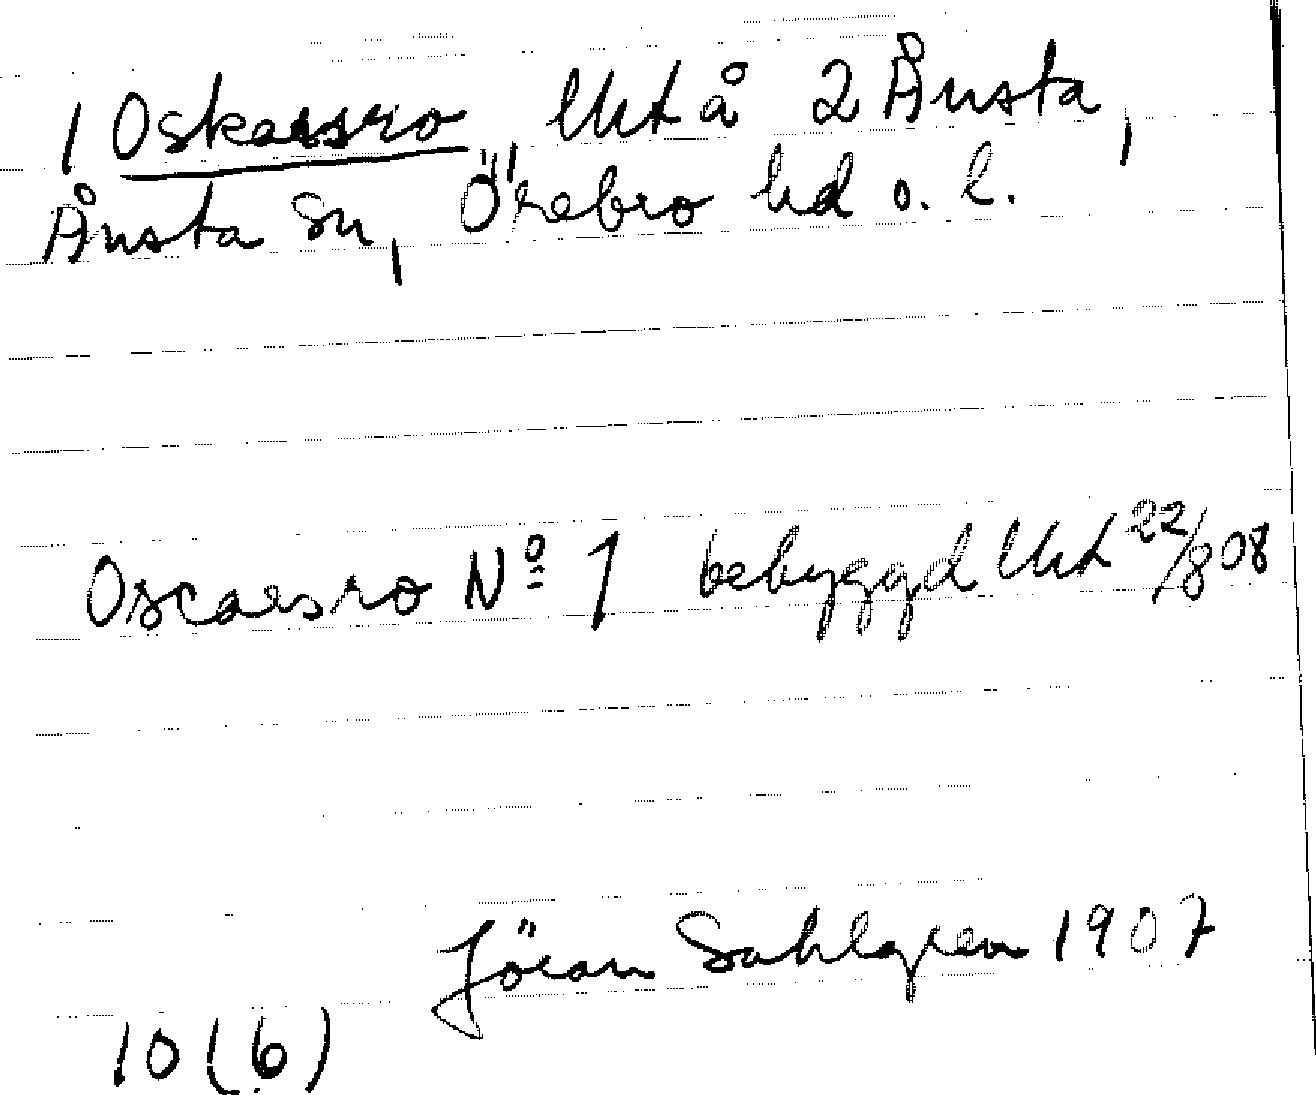 1 Oskarsro, lht å 2 Ånsta,
Ånsta sn, Örebro hd o. l.
Oscarsro Nº 1 bebyggd lht 22/8 08
Jöran Sahlgren 1907
10 (6)